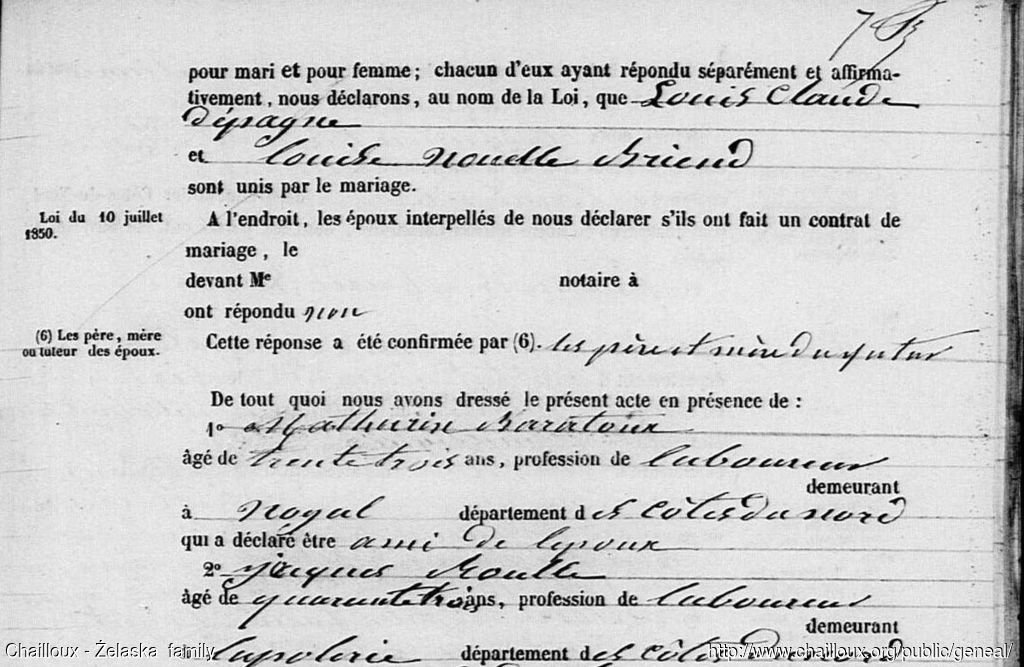 pour mari et pour femme ; chacun d'eux ayant répondu séparément et affirma-
tivement, nous déclarons, au nom de la Loi, que Louis Claude
Dépagne
et Louise Nouelle Briend
sont unis par le mariage.
Loi du 10 juillet
1850.
A l'endroit, les époux interpellés de nous déclarer s'ils ont fait un contrat de
mariage, le
devant Me notaire à
ont répondu non
(6) Les père, mère
ou tuteur des époux.
Cette réponse a été confirmée par (6). les père et mère du futur
De tout quoi nous avons dressé le présent acte en présence de :
1o Mathurin Baratoux
âgé de trente trois ans, profession de laboureur
demeurant
à Noyal département des Côtes du Nord
qui a déclaré être ami de lepoux
2o Jacques
âgé de quarante trois ans, profession de laboureur
demeurant
à département des Côtes du Nord
Chailloux - Żelaska family
http://www.chailloux.org/public/geneal/